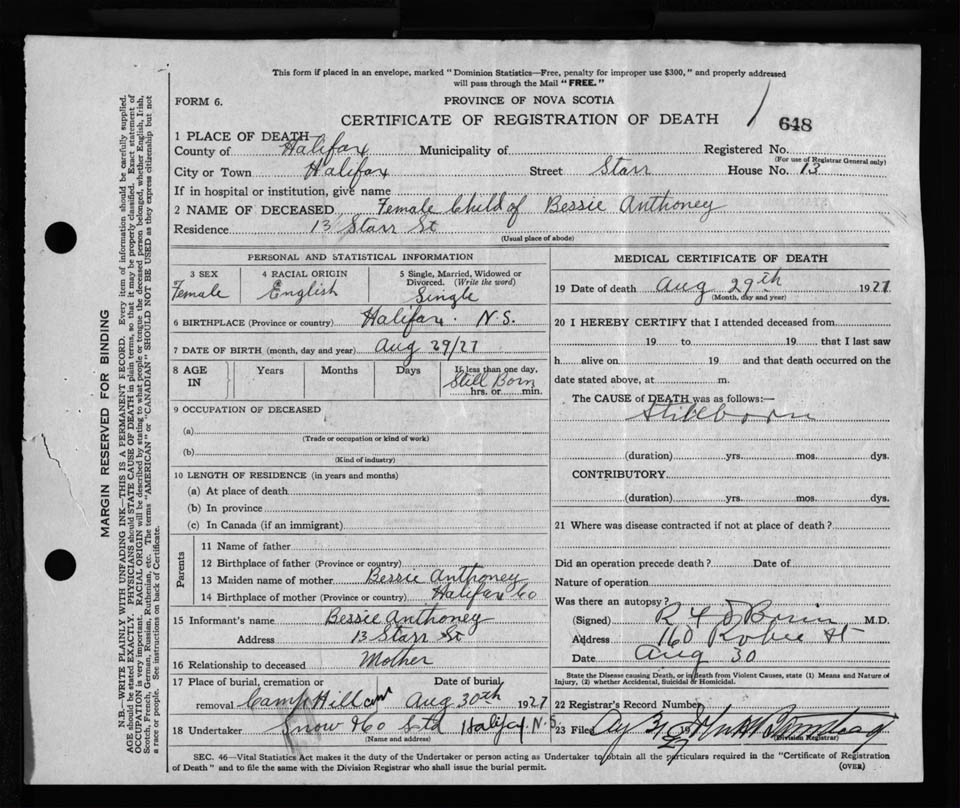 This form if placed in an envelope, marked "Dominion Statistics—Free, penalty for improper use $300," and properly addressed
will pass through the Mail "FREE."
FORM 6.
PROVINCE OF NOVA SCOTIA
CERTIFICATE OF REGISTRATION OF DEATH
648
1 PLACE OF DEATH
County of Halifax Municipality of Registered No.
(For use of Registrar General only)
City or Town Halifax Street Starr House No. 13
If in hospital or institution, give name
2 NAME OF DECEASED Female Child of Bessie Anthoney
Residence 13 Starr St
(Usual place of abode)
PERSONAL AND STATISTICAL INFORMATION
3 SEX
Female
4 RACIAL ORIGIN
English
5 Single, Married, Widowed or
Divorced. (Write the word)
Single
6 BIRTHPLACE (Province or country) Halifax. N.S.
7 DATE OF BIRTH (month, day and year) Aug 29/27
8 AGE
IN
Years
Months
Days
If less than one day,
Still Born
hrs. or min.
9 OCCUPATION OF DECEASED
(a)
(Trade or occupation or kind of work)
(b)
(Kind of industry)
10 LENGTH OF RESIDENCE (in years and months)
(a) At place of death
(b) In province
(c) In Canada (if an immigrant)
Parents
11 Name of father
12 Birthplace of father (Province or country)
13 Maiden name of mother Bessie Anthoney
14 Birthplace of mother (Province or country) Halifax Co
15 Informant's name Bessie Anthoney
Address 13 Starr St
16 Relationship to deceased Mother
17 Place of burial, cremation or
Date of burial
removal Camp Hill Cem Aug 30th 1927
18 Undertaker Snow & Co Ltd Halifax N.S.
(Name and address)
MEDICAL CERTIFICATE OF DEATH
19 Date of death Aug 29th 1927
(Month, day and year)
20 I HEREBY CERTIFY that I attended deceased from
19 to 19 that I last saw
h alive on 19 and that death occurred on the
date stated above, at m.
The CAUSE of DEATH was as follows:—
Stillborn
(duration) yrs. mos. dys.
CONTRIBUTORY
(duration) yrs. mos. dys.
21 Where was disease contracted if not at place of death?
Did an operation precede death? Date of
Nature of operation
Was there an autopsy?
(Signed) M.D.
Address 160 Robie St
Date Aug 30
State the Disease causing Death, or in Death from Violent Causes, state (1) Means and Nature of
Injury, (2) whether Accidental, Suicidal or Homicidal.
22 Registrar's Record Number
23 Filed
(Division Registrar)
SEC. 46—Vital Statistics Act makes it the duty of the Undertaker or person acting as Undertaker to obtain all the particulars required in the "Certificate of Registration
of Death" and to file the same with the Division Registrar who shall issue the burial permit.
(OVER)
MARGIN RESERVED FOR BINDING
N.B.—WRITE PLAINLY WITH UNFADING INK—THIS IS A PERMANENT RECORD. Every item of information should be carefully supplied.
AGE should be stated EXACTLY. PHYSICIANS should STATE CAUSE OF DEATH in plain terms, so that it may be properly classified. Exact statement of
OCCUPATION is very important. RACIAL ORIGIN will be described by stating to what people or tongue the deceased person belonged, whether English, Irish,
Scotch, French, German, Russian, Ruthenian, etc. The terms "AMERICAN" or "CANADIAN" SHOULD NOT BE USED as they express citizenship but not
a race or people. See instructions on back of Certificate.